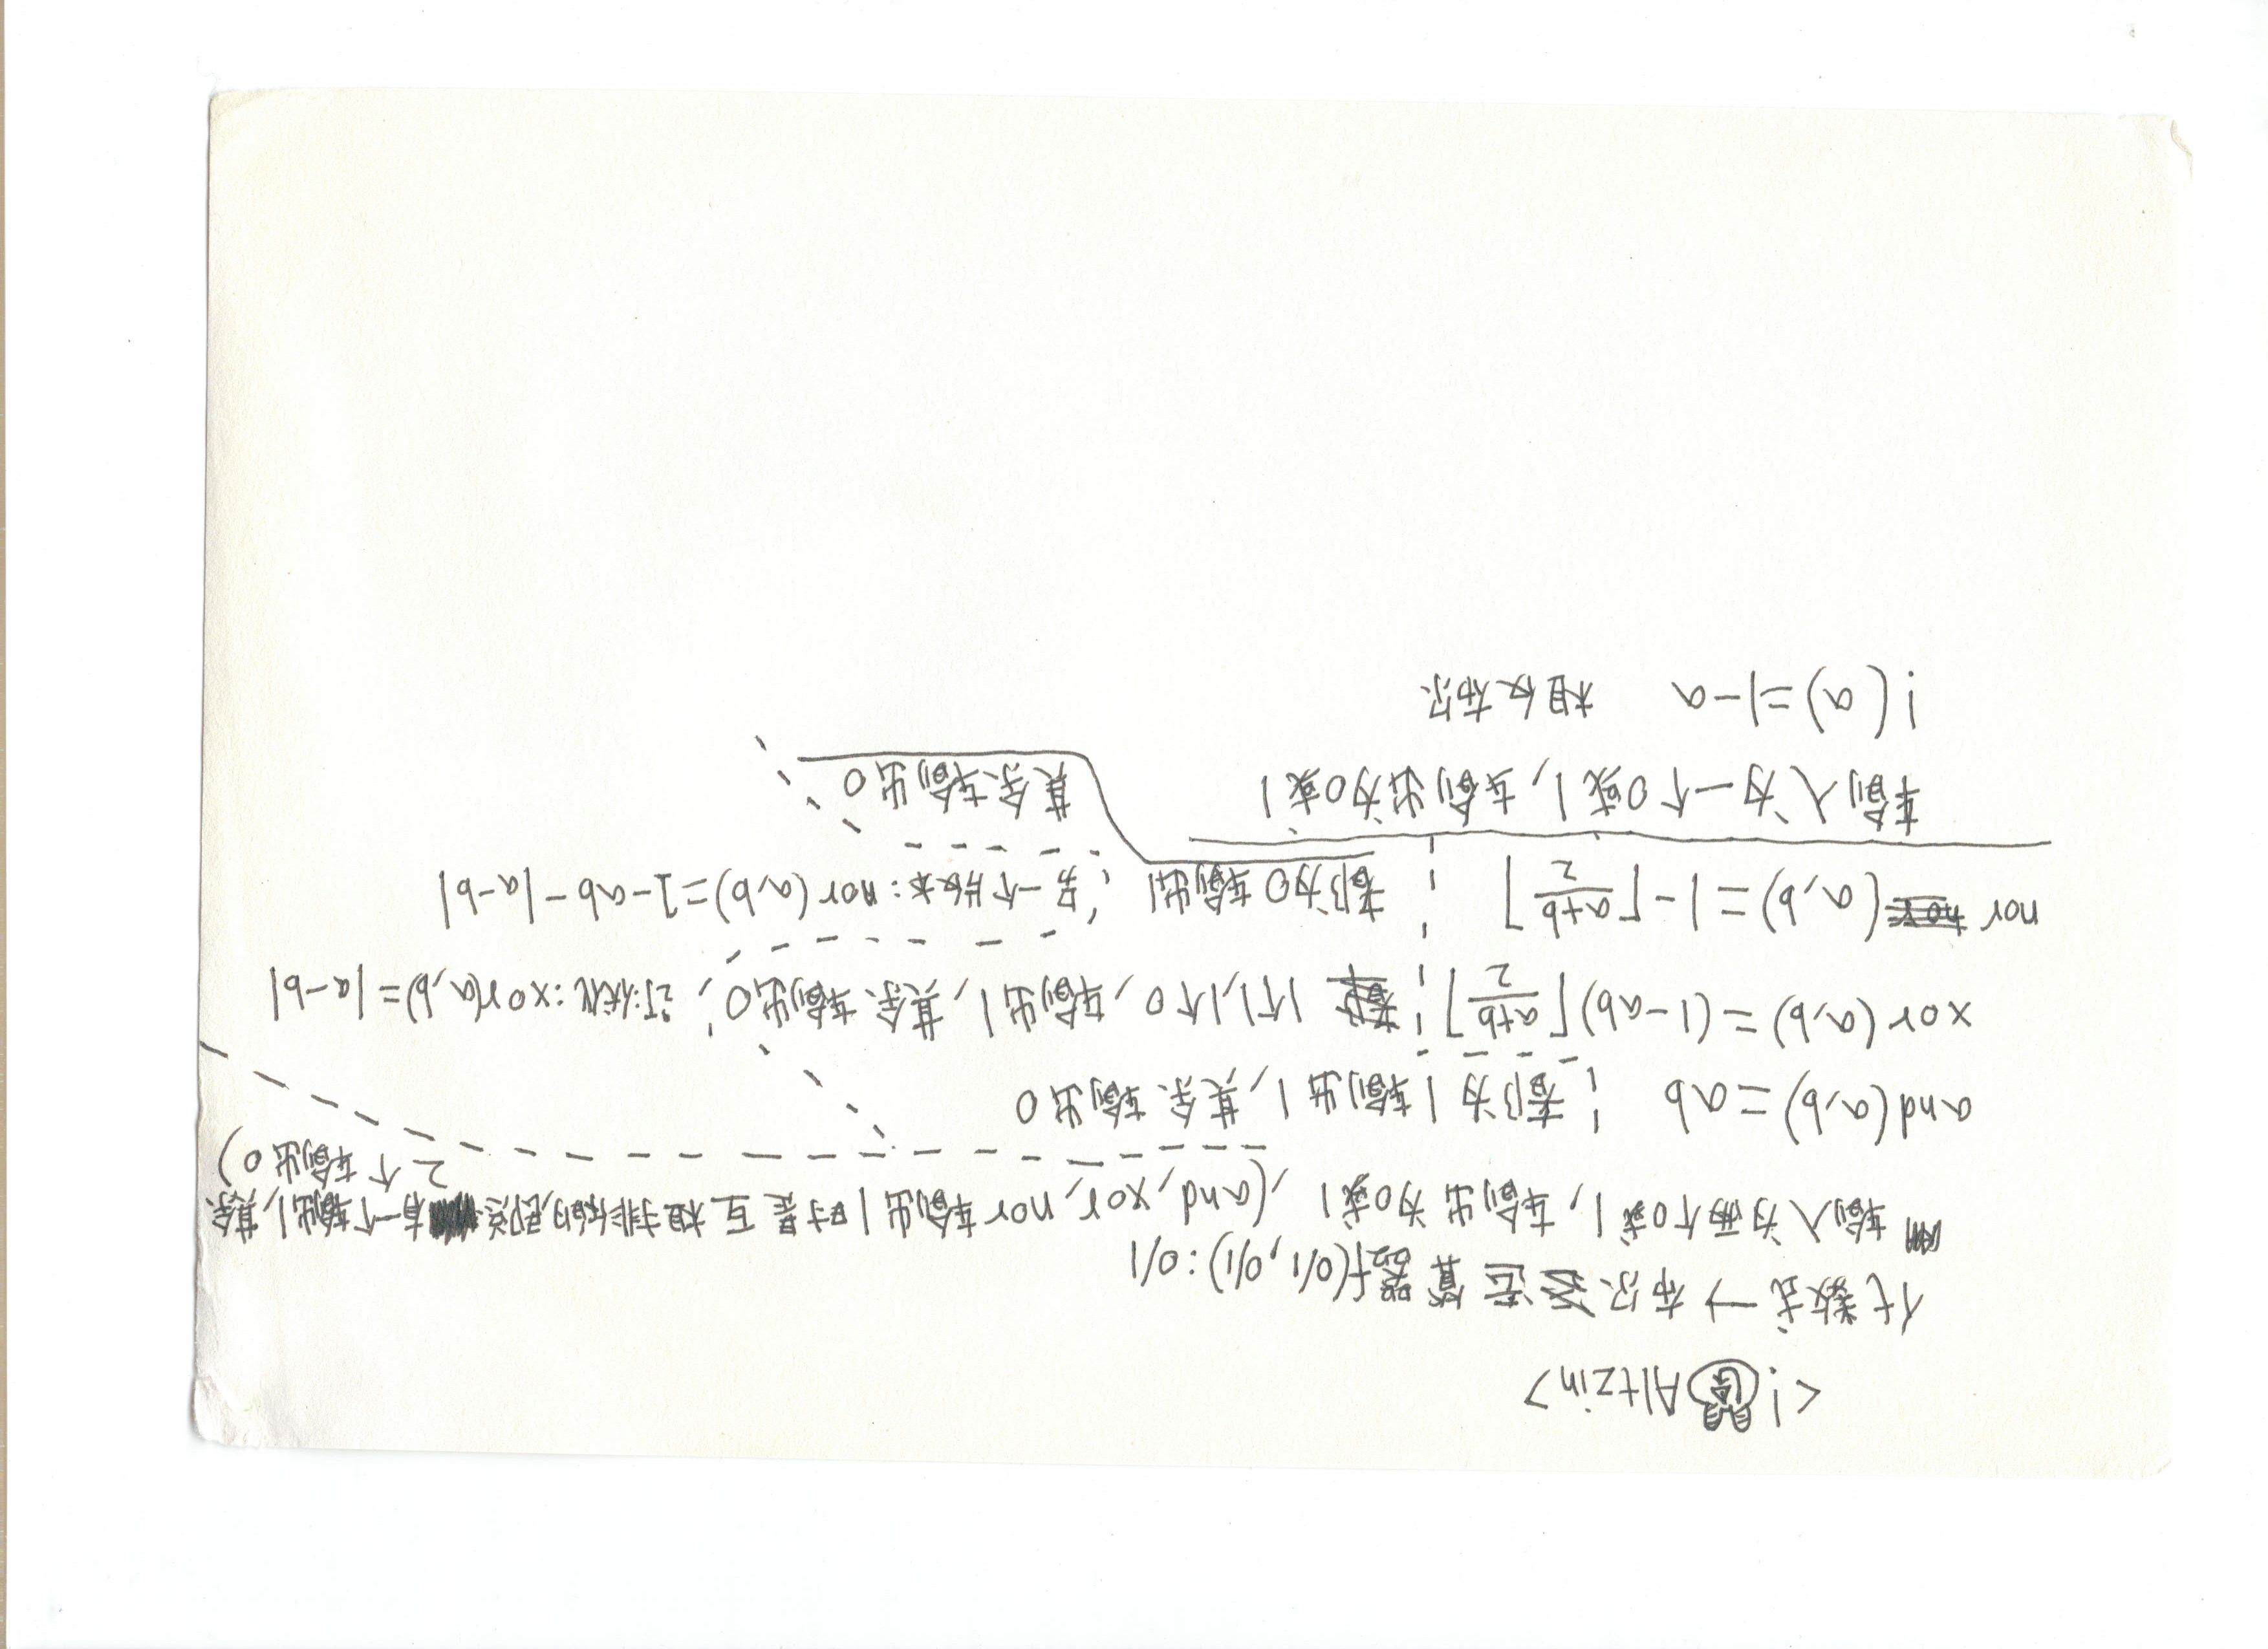 <! Altzin>
代数式→布尔运算器f(0/1,0/1):0/1
输入为两个0或1,输出为0或1,(and,xor,nor输出1时是互相排斥的,即总有一个输出1,其余
二个输出0)
and(a,b)=ab ¦都为1输出1,其余输出0
xor(a,b)=(1-ab)⌈(a+b)/2⌉ ¦1个1,1个0,输出1,其余输出0;¦优化:xor(a,b)=|a-b|
nor(a,b)=1-⌈(a+b)/2⌉ ¦都为0输出1 ¦另一个版本:nor(a,b)=1-ab-|a-b|
其余输出0
输入为一个0或1,输出为0或1
!(a)=1-a 相反布尔